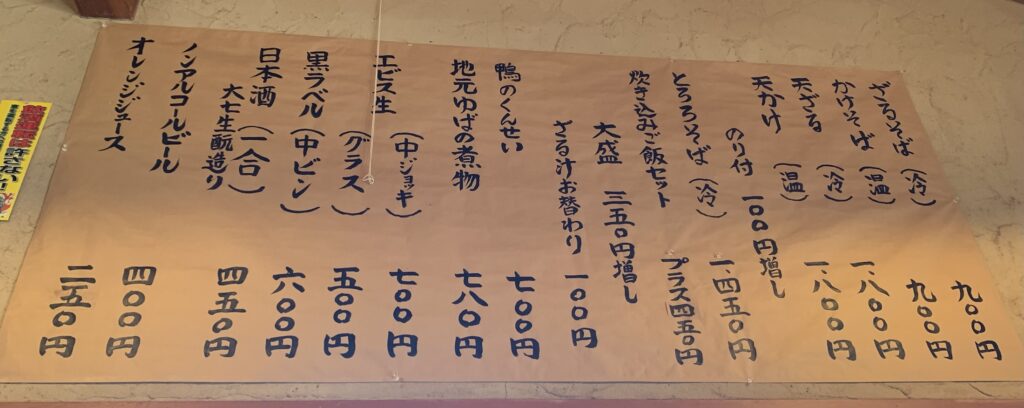 ざるそば（冷） 九〇〇円
かけそば（温） 九〇〇円
天ざる（冷） 一、八〇〇円
天かけ（温） 一、八〇〇円
のり付 一〇〇円増し
とろろそば（冷） 一、四五〇円
炊き込みご飯セット プラス四五〇円
大盛 三五〇円増し
ざる汁お替わり 一〇〇円
鴨のくんせい 七〇〇円
地元ゆばの煮物 七八〇円
エビス生（中ジョッキ） 七〇〇円
（グラス） 五〇〇円
黒ラベル（中ビン） 六〇〇円
日本酒（一合） 四五〇円
大七生酛造り
ノンアルコールビール 四〇〇円
オレンジジュース 二五〇円
許さない!!